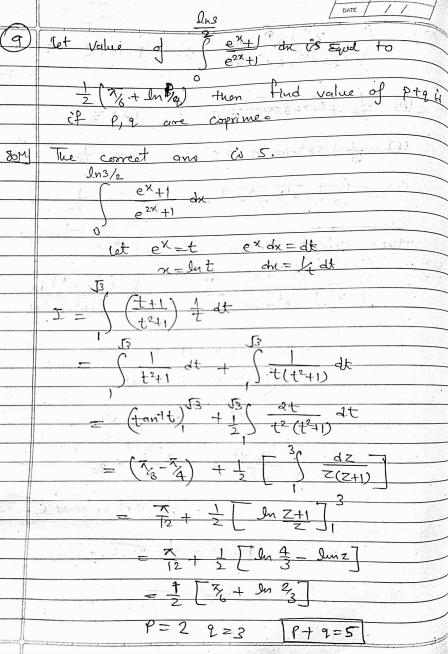 DATE / /
9 Let value of ∫₀^(ln3/2) (e^x+1)/(e^2x+1) dx is equal to
1/2 (π/6 + ln p/q) then find value of p+q is
if p, q are coprime.
Solⁿ] The correct ans is 5.
∫₀^(ln3/2) (e^x+1)/(e^2x+1) dx
Let e^x = t e^x dx = dt
x = ln t dx = 1/t dt
I = ∫₁^√3 ((t+1)/(t²+1)) 1/t dt
= ∫₁^√3 1/(t²+1) dt + ∫₁^√3 1/(t(t²+1)) dt
= (tan⁻¹t)₁^√3 + 1/2 ∫₁^√3 2t/(t²(t²+1)) dt
= (π/3 - π/4) + 1/2 [∫₁³ dz/(z(z+1))]
= π/12 + 1/2 [ln (z+1)/z]₁³
= π/12 + 1/2 [ln 4/3 - ln 2]
= 1/2 [π/6 + ln 2/3]
P = 2 q = 3 P + q = 5